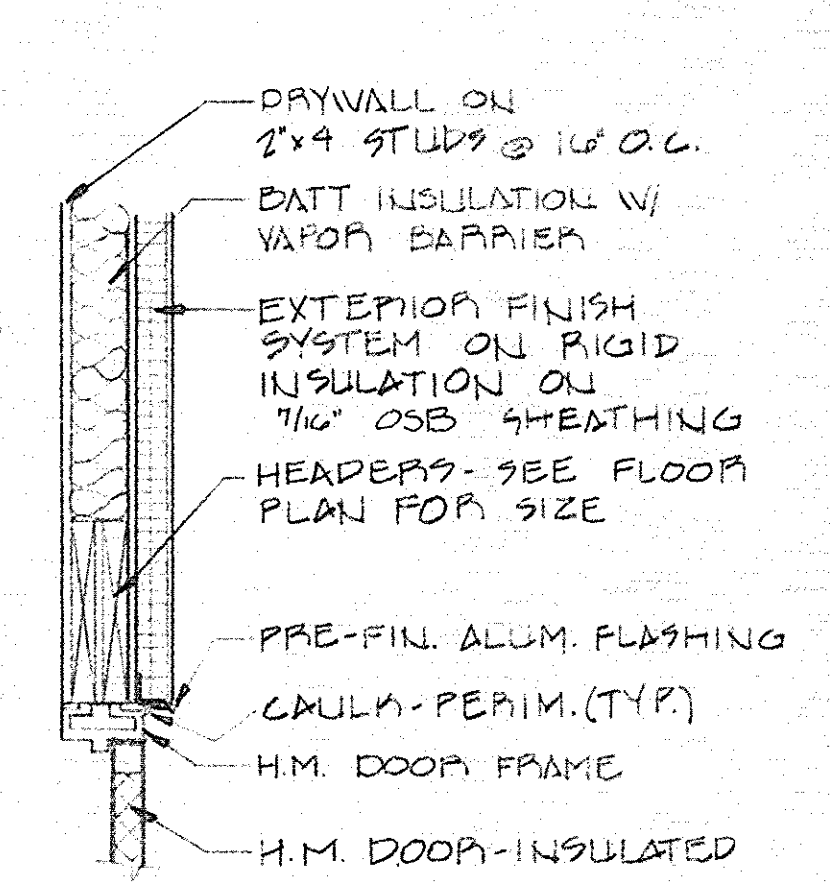 DRYWALL ON
2"x4 STUDS @ 16" O.C.
BATT INSULATION W/
VAPOR BARRIER
EXTERIOR FINISH
SYSTEM ON RIGID
INSULATION ON
7/16" OSB SHEATHING
HEADERS- SEE FLOOR
PLAN FOR SIZE
PRE-FIN. ALUM. FLASHING
CAULK-PERIM.(TYP.)
H.M. DOOR FRAME
H.M. DOOR-INSULATED